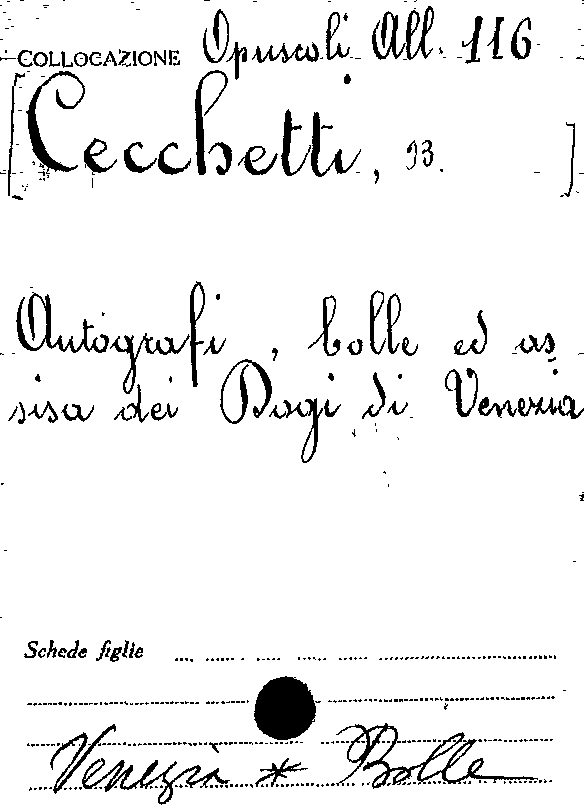 COLLOCAZIONE Opuscoli All. 116
[Cecchetti, B.]
Autografi, bolle ed as
sisa dei Dogi di Venezia
Schede figlie
Venezia * Bolle